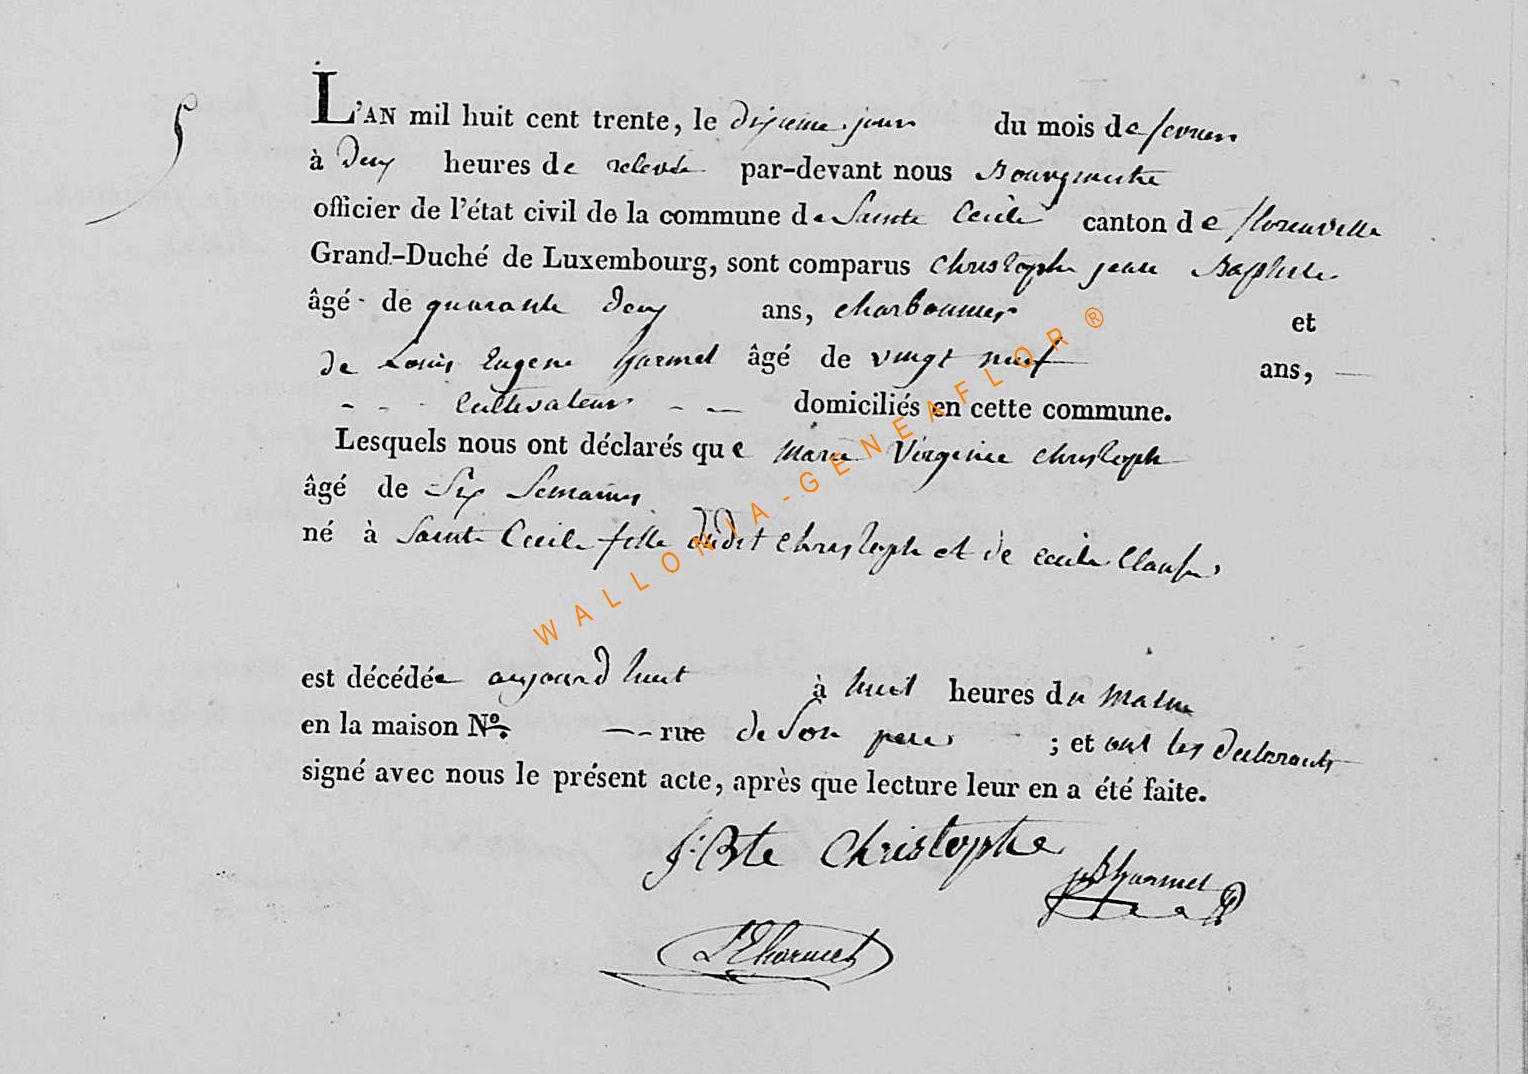 5
L'AN mil huit cent trente, le dixieme jour du mois de fevrier
à deux heures de relevée par-devant nous Bourgmestre
officier de l'état civil de la commune de Sainte Cecile canton de florenville
Grand-Duché de Luxembourg, sont comparus christophe jean Baptiste
âgé de quarante deux ans, charbonnier et
de Louis Eugene harmel âgé de vingt neuf ans,
cultivateur domiciliés en cette commune.
Lesquels nous ont déclarés que marie Virginie christophe
âgé de Six Semaines
né à Sainte Cecile fille dudit christophe et de cecile
est décédée aujourd huit à huit heures du matin
en la maison N°. rue de Son pere ; et ont les declarants
signé avec nous le présent acte, après que lecture leur en a été faite.
J. Bte Christophe
JBharmel
LEharmel
WALLONIA-GENEAFLOR ®